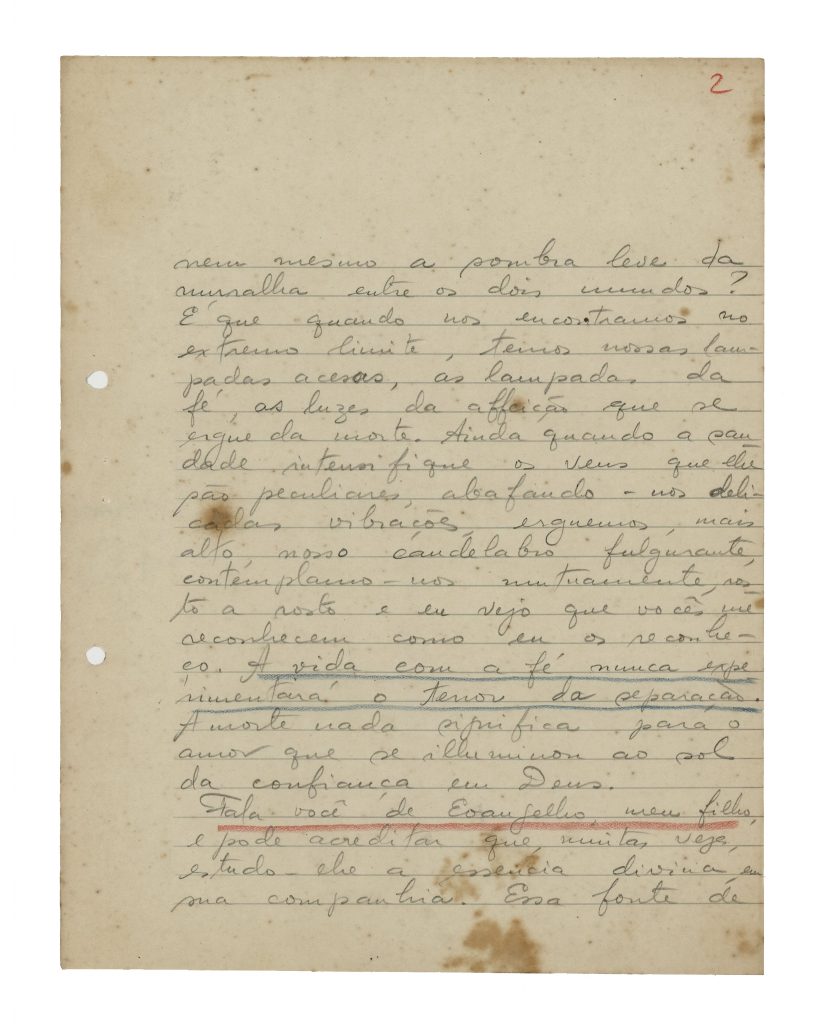 2
nem mesmo a sombra leve da
muralha entre os dois mundos?
E' que quando nos encontramos no
extremo limite, temos nossas lam-
padas acesas, as lampadas da
fé, as luzes da affeição que se
ergue da morte. Ainda quando a sau
dade intensifique os veus que lhe
são peculiares, abafando-nos deli-
cadas vibrações, erguemos, mais
alto, nosso candelabro fulgurante,
contemplamo-nos mutuamente, ros
to a rosto e eu vejo que vocês me
reconhecem como eu os reconhe-
ço. A vida com a fé nunca expe
rimentará o terror da separação.
A morte nada significa para o
amor que se illuminou ao sol
da confiança em Deus.
Fala você de Evangelho, meu filho,
e pode acreditar que, muitas vezes,
estudo-lhe a essencia divina em
sua companhia. Essa fonte de